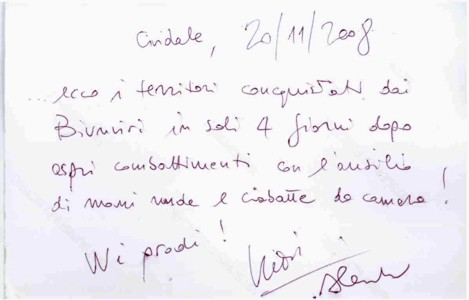 Cividale, 20/11/2008
...ecco i territori conquistati dai
Biunviri in soli 4 giorni dopo
aspri combattimenti con l'ausilio
di mani nude e ciabatte da camera!
W i prodi!